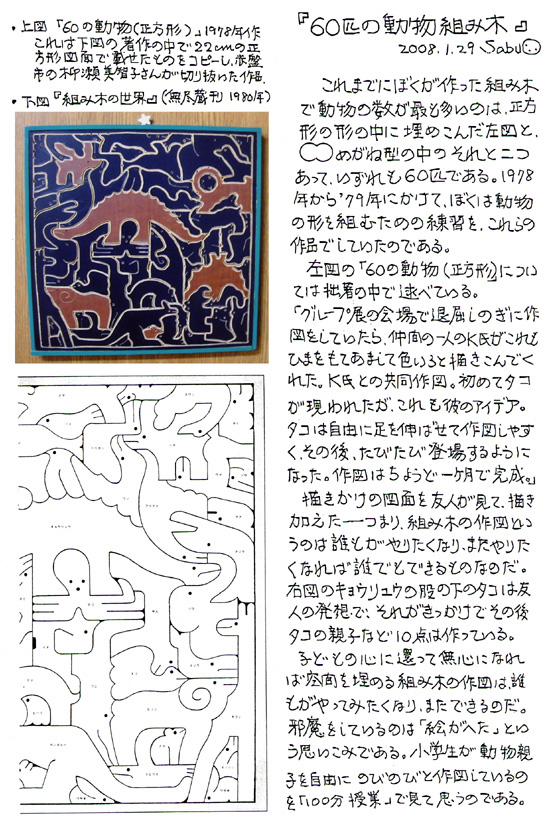 ・上図「60の動物(正方形)」1978年作
これは下図の著作の中で22cmの正
方形図面で載せたものをコピーし、
市の柳瀬美智子さんが切り抜いた作品.
・下図『組み木の世界』(無尽蔵刊 1980年)
『60匹の動物組み木』
2008.1.29 Sabu
これまでにぼくが作った組み木
で動物の数が最も多いのは、正方
形の形の中に埋めこんだ左図と、
めがね型の中のそれと二つ
あって、いずれも60匹である。1978
年から'79年にかけて、ぼくは動物
の形を組むための練習を、これらの
作品でしていたのである。
左図の「60の動物(正方形)」につい
ては拙著の中で述べている。
「グループ展の会場で退屈しのぎに作
図をしていたら、仲間の一人のK氏がこれも
ひまをもてあまして色いろと描きこんでく
れた。K氏との共同作図。初めてタコ
が現われたが、これも彼のアイデア。
タコは自由に足を伸ばせて作図しやす
く、その後、たびたび登場するように
なった。作図はちょうど一ヶ月で完成。」
描きかけの図面を友人が見て、描き
加えた――つまり、組み木の作図とい
うのは誰もがやりたくなり、またやりた
くなれば誰でもできるものなのだ。
右図のキョウリュウの股の下のタコは友
人の発想で、それがきっかけでその後
タコの親子など10点は作っている。
子どもの心に還って無心になれ
ば空間を埋める組み木の作図は、誰
もがやってみたくなり、またできるのだ。
邪魔をしているのは「絵がへた」とい
う思いこみである。小学生が動物親
子を自由にのびのびと作図しているの
を「100分授業」で見て思うのである。